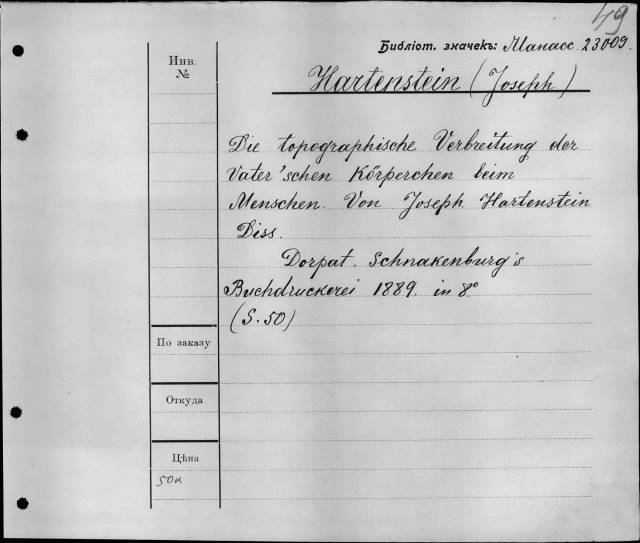 49
Библіот. значекъ: Манасс. 23009.
Инв.
№
Hartenstein (Joseph)
Die topographische Verbreitung der
Vater'schen Körperchen beim
Menschen. Von Joseph Hartenstein
Diss.
Dorpat. Schnakenburg's
Buchdruckerei 1889. in 8°
(S. 50)
По заказу
Откуда
Цѣна
50к